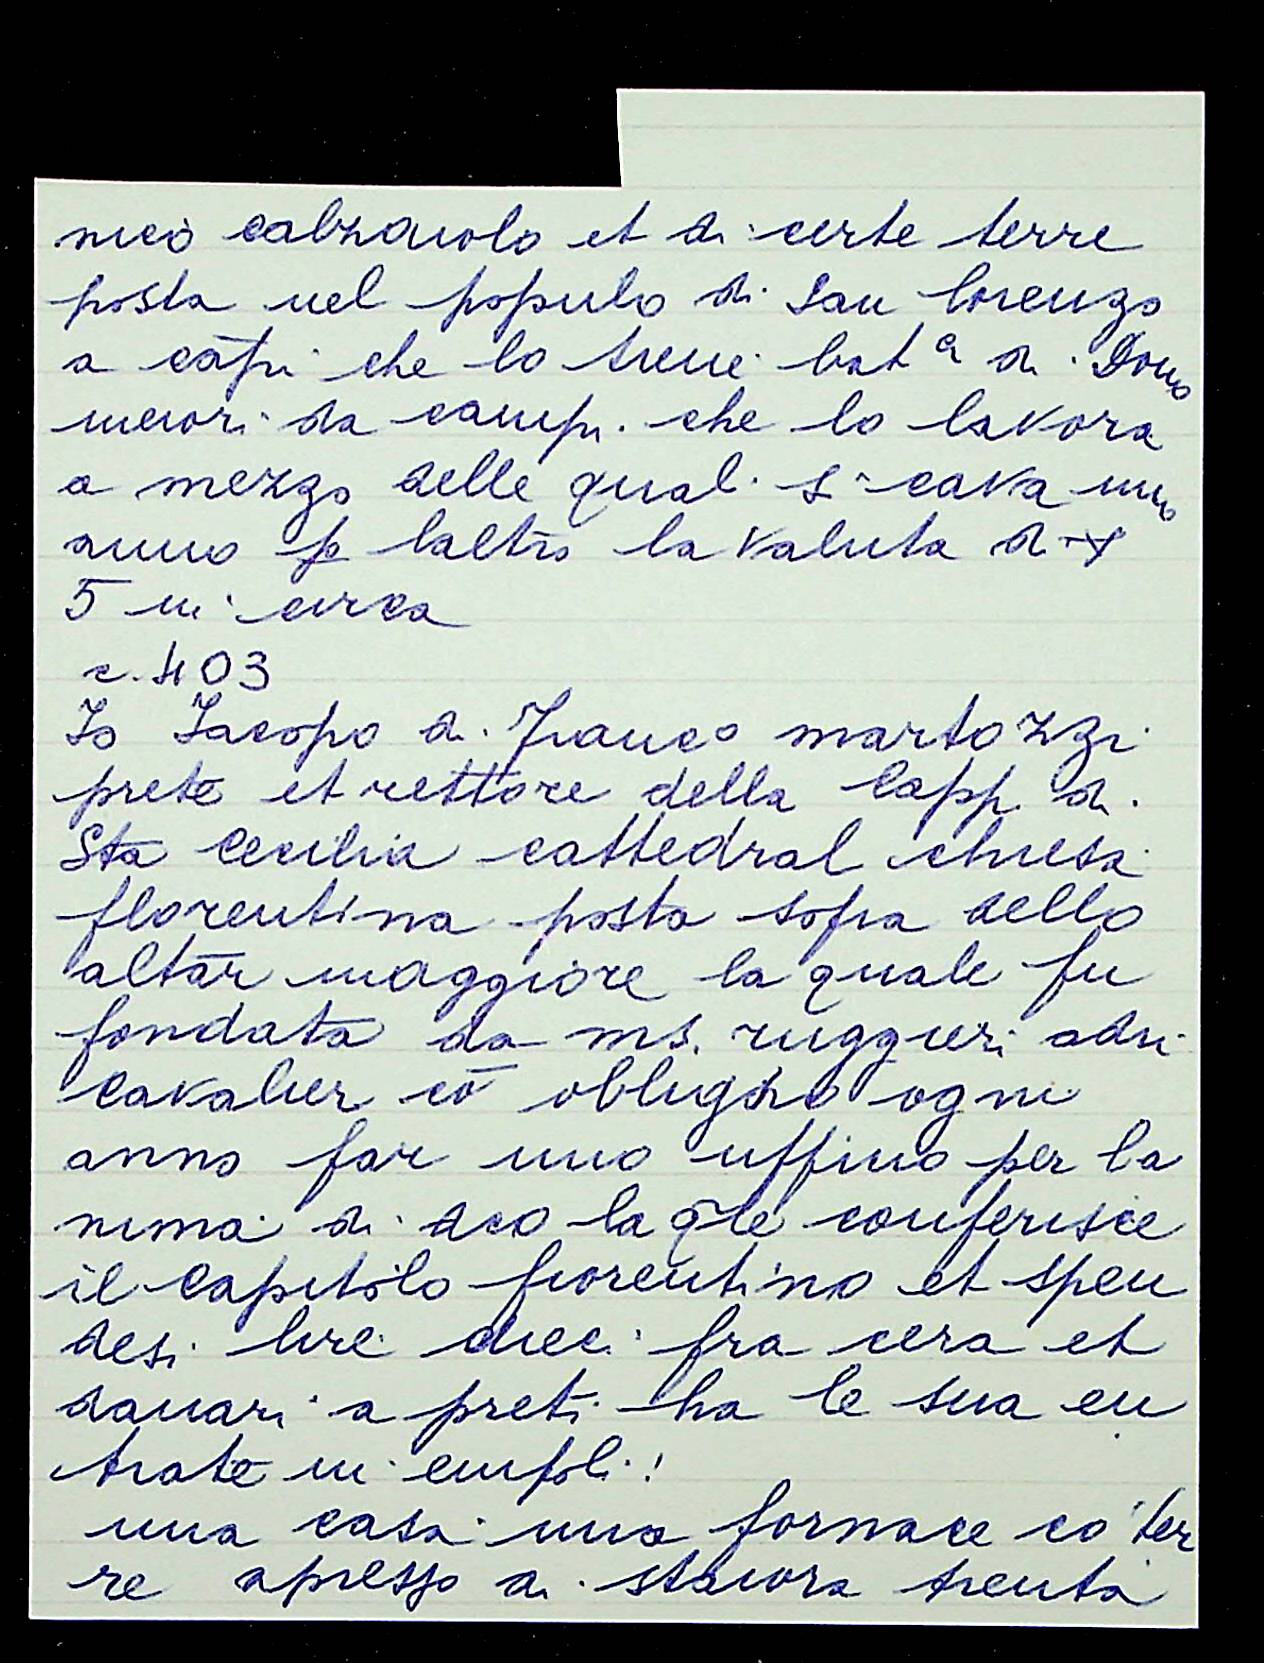 nico calzaiuolo et di certe terre
posta nel populo di San lorenzo
a cāpi che lo tiene bat.a di Dono
menori da campi che lo lavora
a mezzo delle quali si cava uno
anno p laltro la valuta di
5 in circa
c. 403
Io Iacopo di Franco martozzi
prete et rettore della Capp. di
Sta Cecilia cattedral chiesa
florentina posta sopra dello
altar maggiore la quale fu
fondata da ms. ruggieri
cavalier cō obligho ogni
anno far uno uffitio per la
nima di dco la q̄le conferisce
il capitolo fiorentino et spen
desi lire dieci fra cera et
danari a preti ha le sua en
trate in empoli:
una casa una fornace co ter
re apresso di staiora trenta